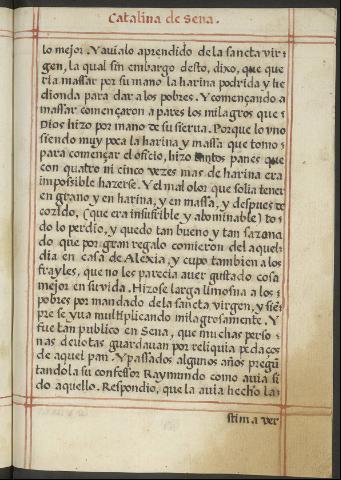 Catalina de Sena.
lo mejor. Y auialo aprendido de la sancta vir-
gen, la qual sin embargo desto, dixo, que que
ria massar por su mano la harina podrida y he
dionda para dar a los pobres. Y començando a
massar començaron a pares los milagros que
Dios hizo por mano de su sierua. Porque lo vno
siendo muy poca la harina y massa que tomo
para començar el officio, hizo tantos panes que
con quatro ni cinco vezes mas de harina era
impossible hazerse. Y el mal olor que solia tener
en grano y en harina, y en massa, y despues de
cozido, (que era insufrible y abominable) to-
do lo perdio, y quedo tan bueno y tan sazona
do que por gran regalo comieron del aquel
dia en casa de Alexia, y cupo tambien a los
frayles, que no les parecia auer gustado cosa
mejor en su vida. Hizose larga limosna a los
pobres por mandado de la sancta virgen, y siẽ-
pre se yua multiplicando milagrosamente. Y
fue tan publico en Sena, que muchas perso-
nas deuotas guardauan por reliquia pedaços
de aquel pan. Y passados algunos años pregũ
tandola su confessor Raymundo como auia si
do aquello. Respondio, que la auia hecho la-
stima ver